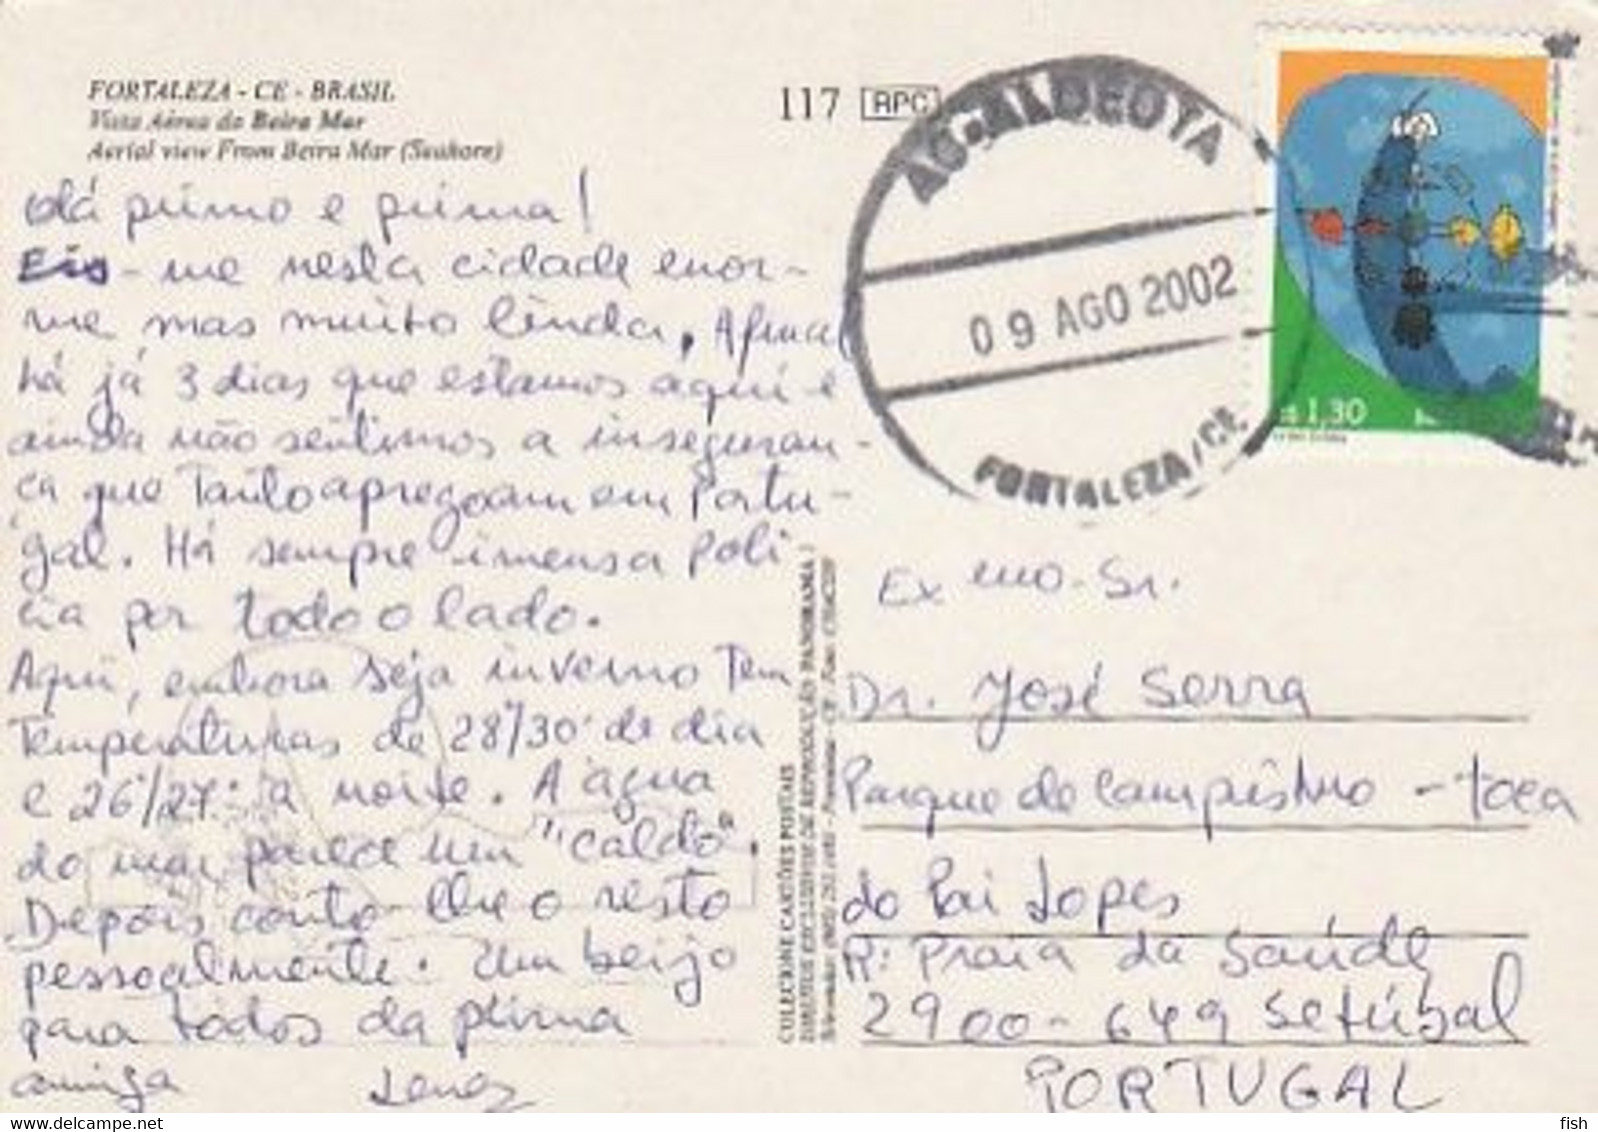 FORTALEZA - CE - BRASIL
Vista Aérea da Beira Mar
Aerial view From Beira Mar (Seahore)
117 RPC
AC. ALDEOTA
09 AGO 2002
FORTALEZA/CE
1,30
Olá primo e prima!
Eis-me nesta cidade enor-
me mas muito linda. Afinal
há já 3 dias que estamos aqui e
ainda não sentimos a inseguran-
ça que tanto apregoam em Portu-
gal. Há sempre imensa Polí
cia por todo o lado.
Aqui, embora seja inverno tem
temperaturas de 28º/30º de dia
e 26º/27º à noite. A água
do mar parece um "caldo".
Depois conto-lhe o resto
pessoalmente. Um beijo
para todos da prima
amiga
COLECIONE CARTÕES POSTAIS
Exmo. Sr.
Dr. José Serra
Parque de Campismo - toca
do Pai Lopes
R: Praia da Saúde
2900-649 Setúbal
PORTUGAL
fish
www.delcampe.net